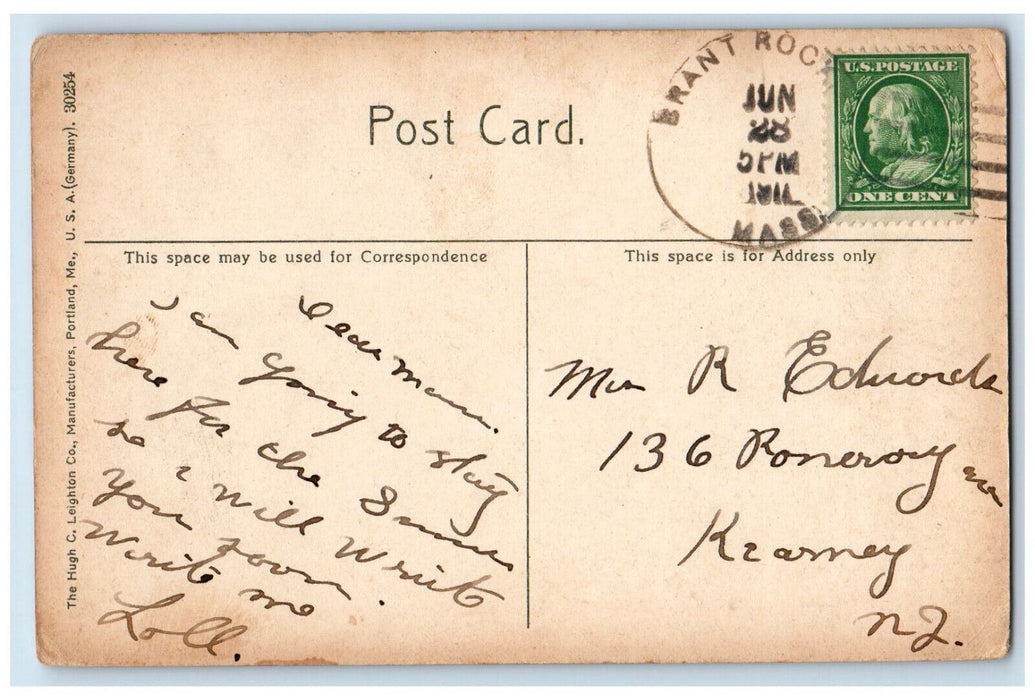 Post Card.
BRANT ROCK
JUN
28
5 PM
MASS.
U.S. POSTAGE
ONE CENT
This space may be used for Correspondence
This space is for Address only
Dear Mam.
I am going to stay
here for the Summer
so i will write
you soon.
write me
Loll.
R Edwards
136 Pomeroy ave
Kearney
N J.
The Hugh C. Leighton Co., Manufacturers, Portland, Me., U. S. A. (Germany). 30254